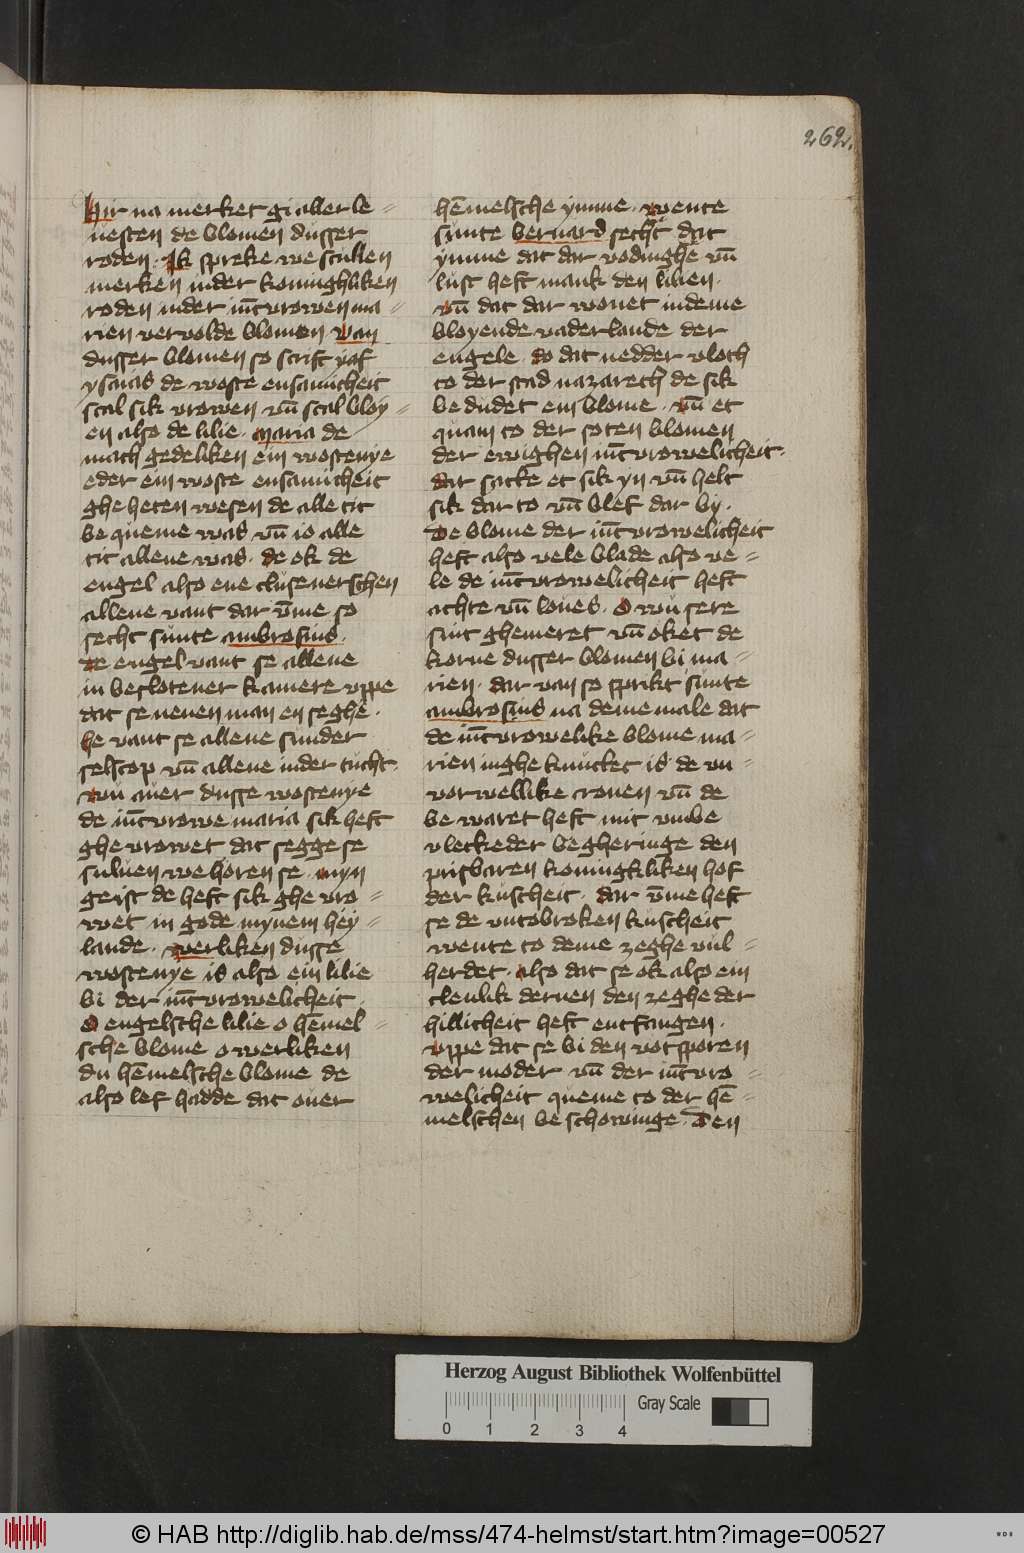 262.
Hir na merket gi aller le =
uesten de blomen dusser
roden. Ik spreke we scullen
merken inder koninghliken
roden inder iūcvrowen ma =
rien vervolde blomen van
dusser blomen so scrift yaf
ysaias de woste ensamicheit
scal sik vrowen vn̄ scal bloy =
en also de lilie. Maria de
mach gedeliken ein wostenye
eder ein woste ensamicheit
ghe heten wesen de alle tit
be queme was vn̄ io alle
tit allene was. de ok de
engel also ene clusenerschen
allene vant dar v̄me so
secht sunte ambrosius.
De engel vant se allene
in beslotener kamere vppe
dat se nenen man en seghe.
he vant se allene sunder
selscop vn̄ allene inder tucht.
wu auer dusse wostenye
de iūcvrowe maria sik heft
ghe vrowet dat segge se
suluen we horen se. myn
geist de heft sik ghe vro =
wet in gode mynem hey =
lande. werliken dusse
wostenye is also ein lilie
bi der iūcvrowelicheit.
O engelsche lilie o hēmel =
sche blome o werliken
du hēmelsche blome de
also lef hadde dat ouer
hēmelsche ymme. wente
sunte bernard secht dat
ymme dat dar vodinghe vn̄
lust heft mank den lilien.
vn̄ dat dar wonet indeme
bloyende vaderlande der
engele. do dat nedder vloch
to der stad nazareth de sik
be dudet ein blome. vn̄ et
quam to der soten blomen
der ewighen iūcvrowelicheit.
dar sacke et sik yn vn̄ helt
sik dar to vn̄ blef dar by.
De blome der iūcvrowelicheit
heft also vele blade also ve =
le de iūcvrowelicheit heft
achte vn̄ loues. O wu sere
sint ghemeret vn̄ oket de
korne dusser blomen bi ma =
rien. dar van so sprikt sunte
ambrosius na deme male dat
de iūcvrowelike blome ma =
rien inghe knucket is de vn =
vorwellike cronen vn̄ de
be waret heft mit vmbe
vleckeder begheringe den
prisbaren koningkliken hof
der kuscheit. dar v̄me heft
se de vntobroken kuscheit
wente to deme zeghe vul =
herdet. also dat se ok also ein
clenlik deruen den zeghe der
hillicheit heft entfangen.
vppe dat se bi den votsporen
der moder vn̄ der iūcvro =
welicheit queme to der hē =
melschen be schowinge. Den
Herzog August Bibliothek Wolfenbüttel
Gray Scale
0 1 2 3 4
© HAB http://diglib.hab.de/mss/474-helmst/start.htm?image=00527